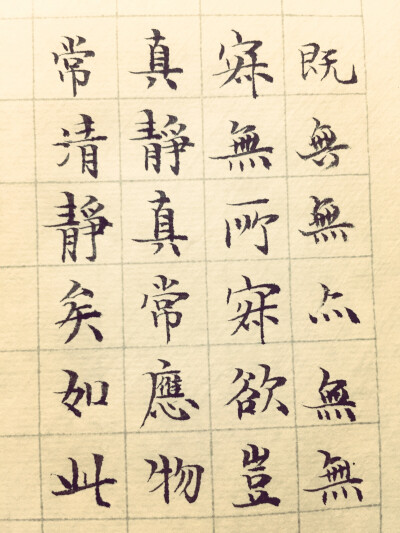 既無無亦無無
寂無所寂欲豈
真靜真常應物
常清靜矣如此